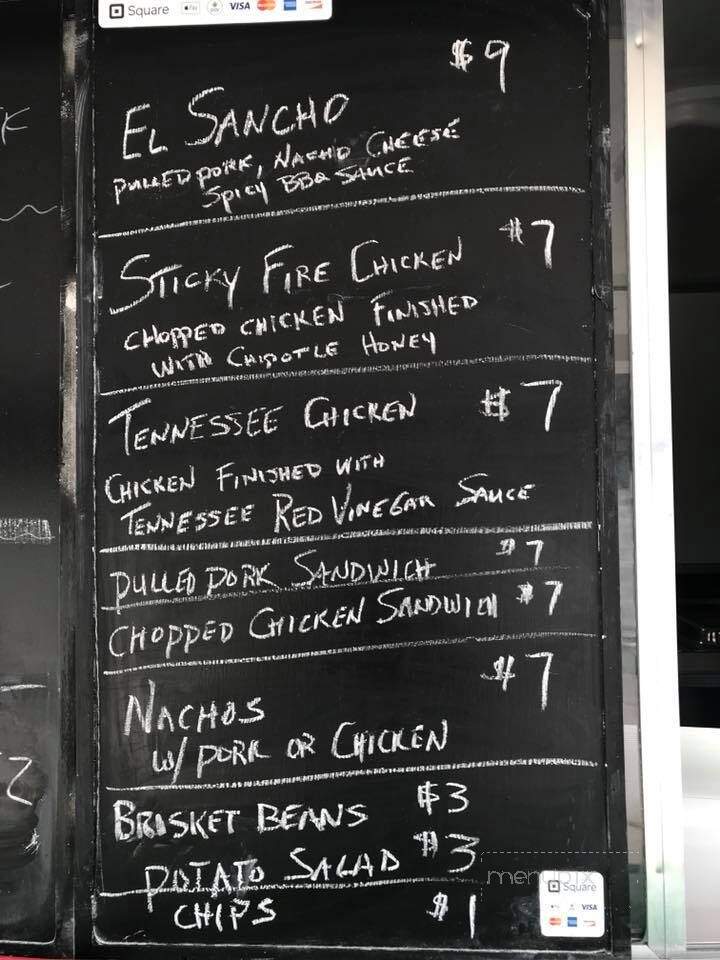 Square Pay VISA
$9
EL SANCHO
PULLED PORK, NACHO CHEESE
SPICY BBQ SAUCE
STICKY FIRE CHICKEN $7
CHOPPED CHICKEN FINISHED
WITH CHIPOTLE HONEY
TENNESSEE CHICKEN $7
CHICKEN FINISHED WITH
TENNESSEE RED VINEGAR SAUCE
PULLED PORK SANDWICH $7
CHOPPED CHICKEN SANDWICH $7
NACHOS $7
W/ PORK OR CHICKEN
BRISKET BEANS $3
POTATO SALAD $3
CHIPS $1
menupix
Square
VISA